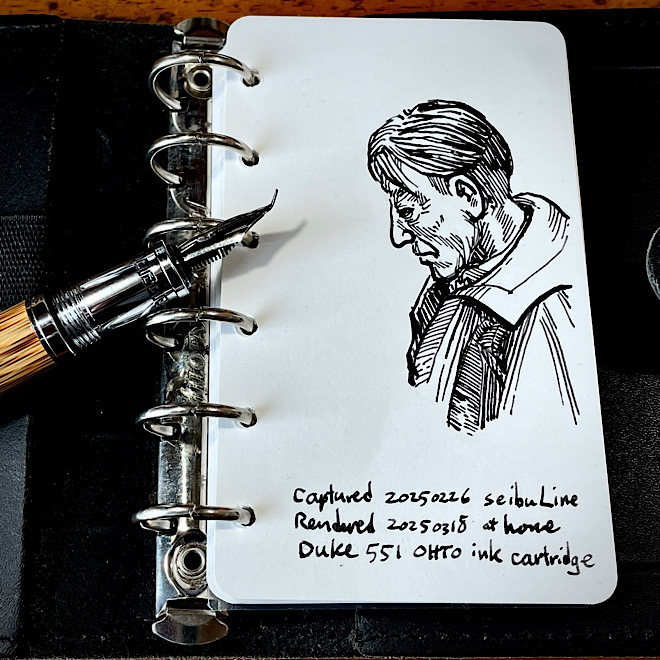 Captured 20250226 seibu Line
Rendered 20250318 at home
Duke 551 OHTO ink cartridge